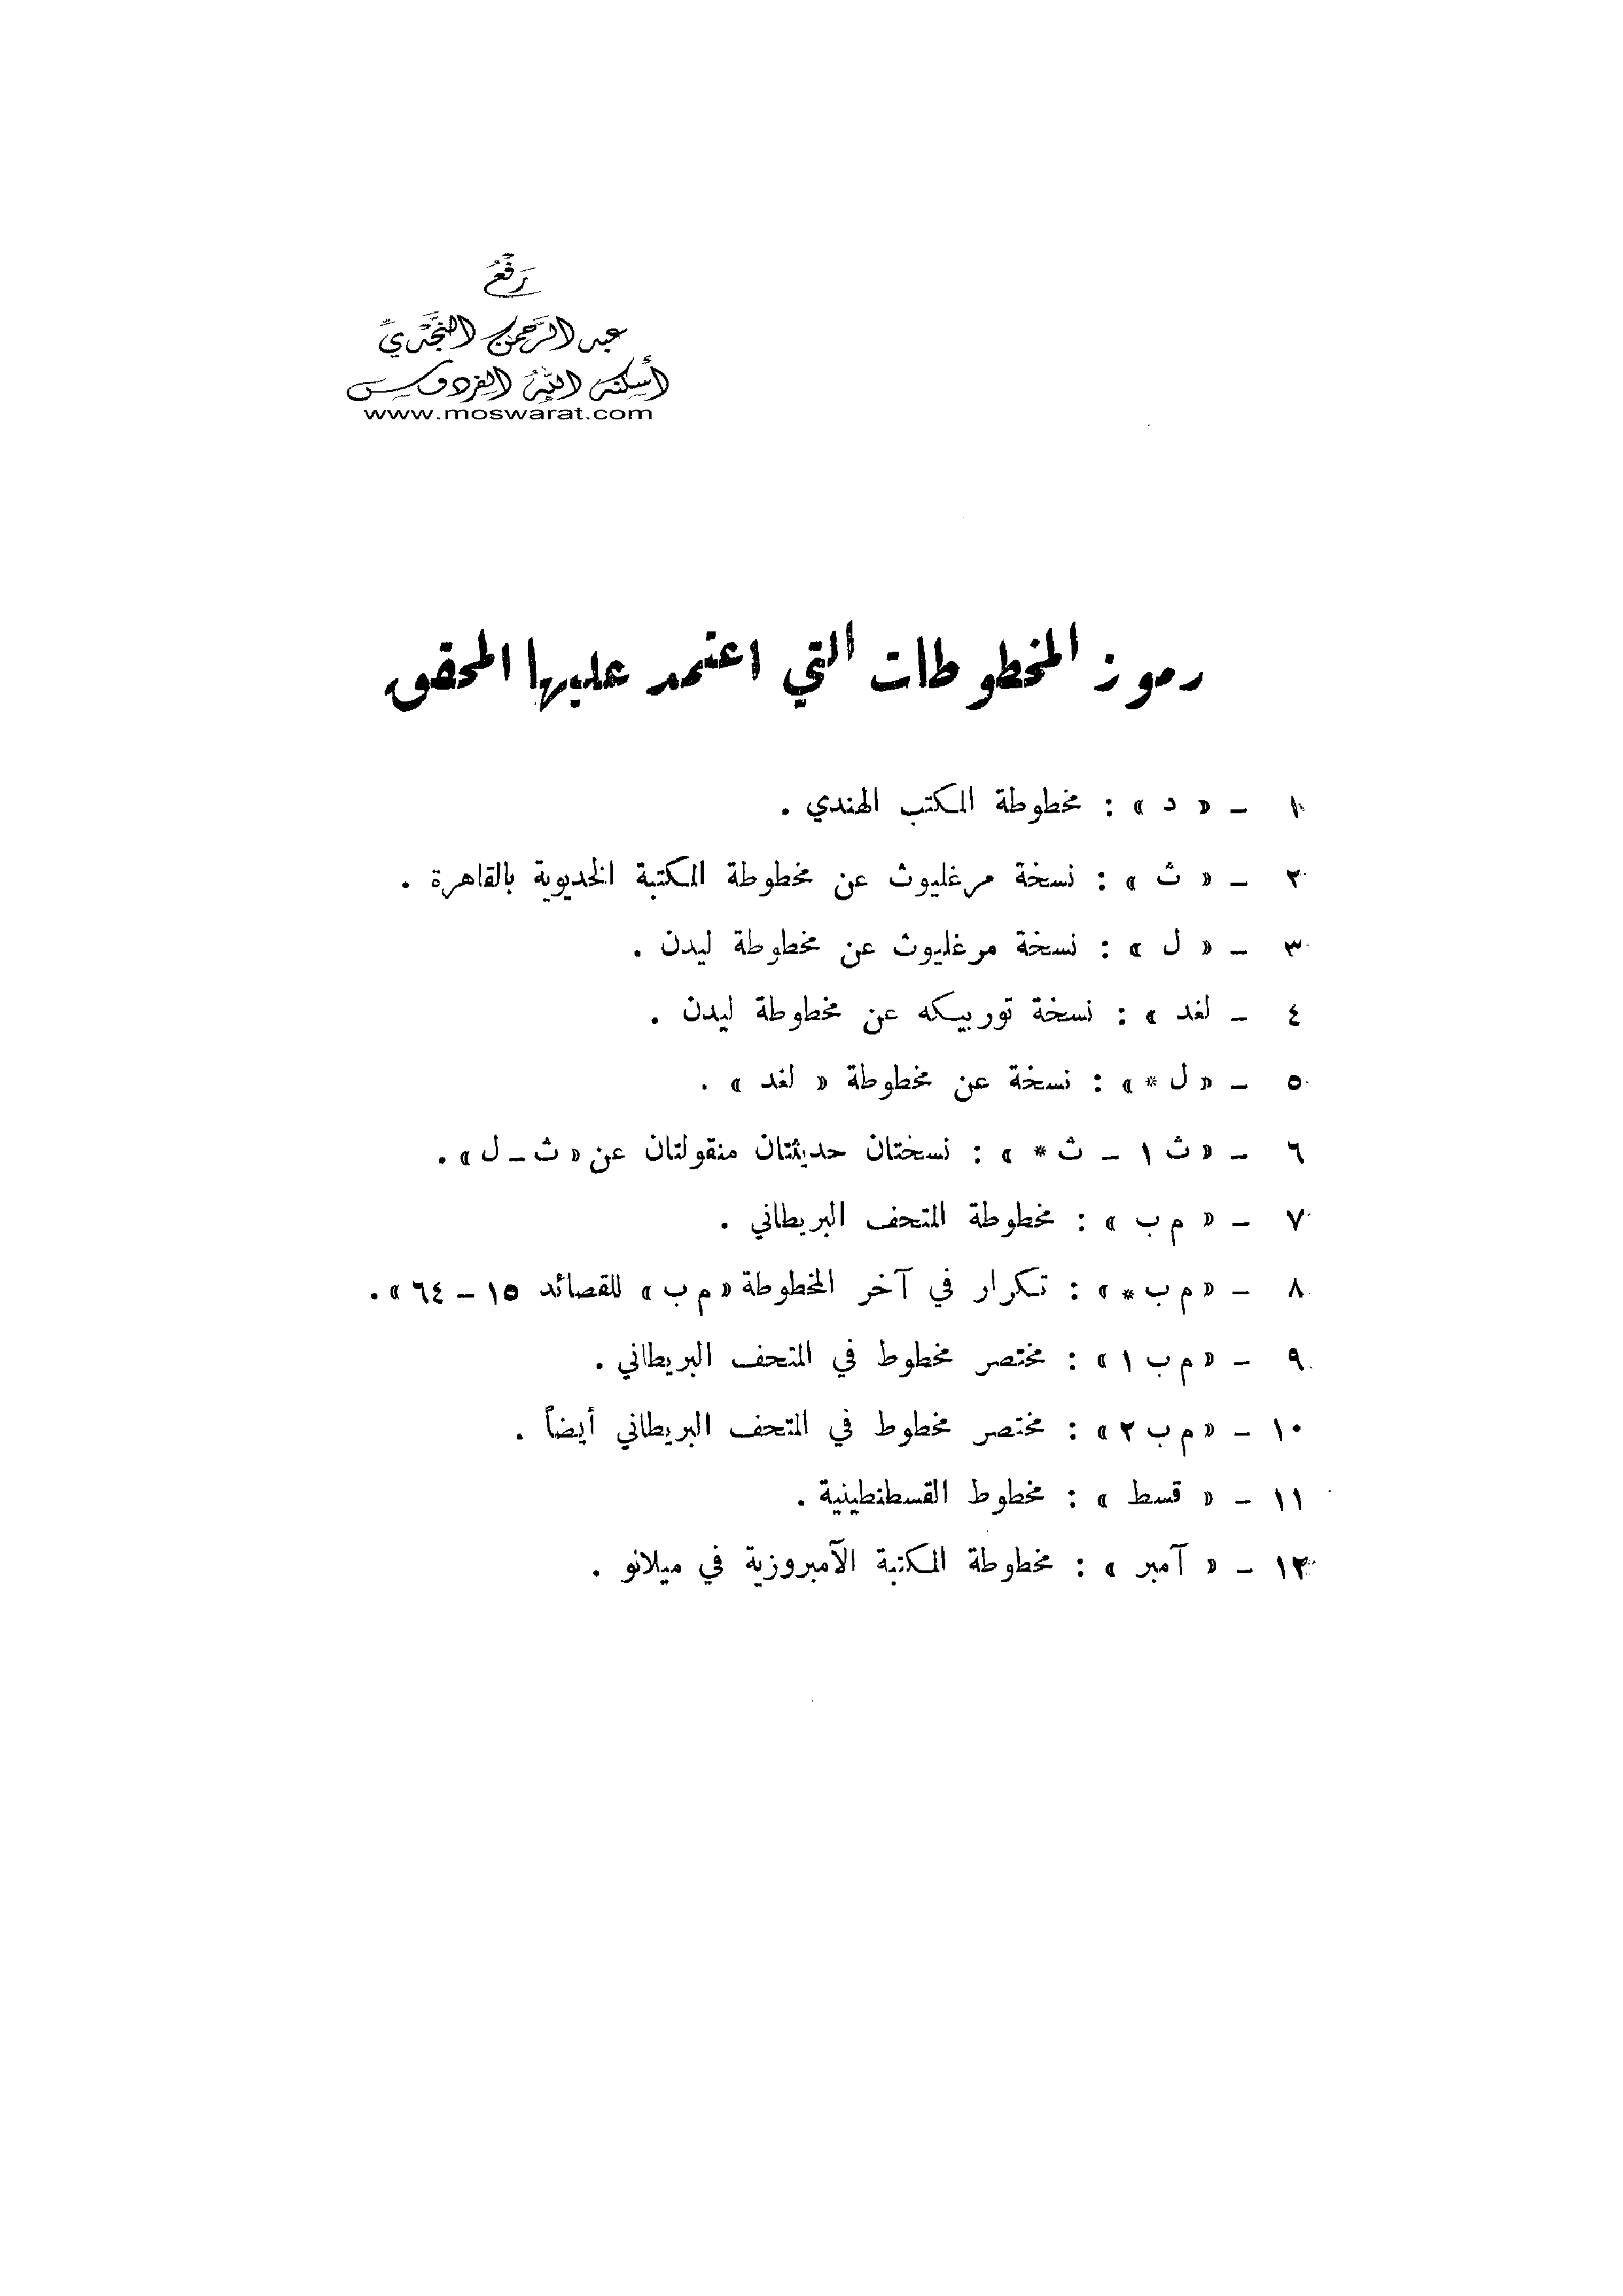 رَفْعُ
عبد الرَّحمن النَّجْديِّ
أسكنه اللهُ الفردوس
www.moswarat.com
رموز المخطوطات التي اعتمد عليها المحقق
١ – « د » : مخطوطة المكتب الهندي .
٢ – « ث » : نسخة مرغليوث عن مخطوطة المكتبة الخديوية بالقاهرة .
٣ – « ل » : نسخة مرغليوث عن مخطوطة ليدن .
٤ – لغد » : نسخة توربيكه عن مخطوطة ليدن .
٥ – « ل * » : نسخة عن مخطوطة « لغد » .
٦ – « ث ١ – ث * » : نسختان حديثتان منقولتان عن « ث – ل » .
٧ – « م ب » : مخطوطة المتحف البريطاني .
٨ – « م ب * » : تكرار في آخر المخطوطة « م ب » للقصائد ١٥ – ٦٤ » .
٩ – « م ب ١ » : مختصر مخطوط في المتحف البريطاني .
١٠ – « م ب ٢ » : مختصر مخطوط في المتحف البريطاني أيضاً .
١١ – « قسط » : مخطوط القسطنطينية .
١٢ – « آمبر » : مخطوطة المكتبة الآمبروزية في ميلانو .